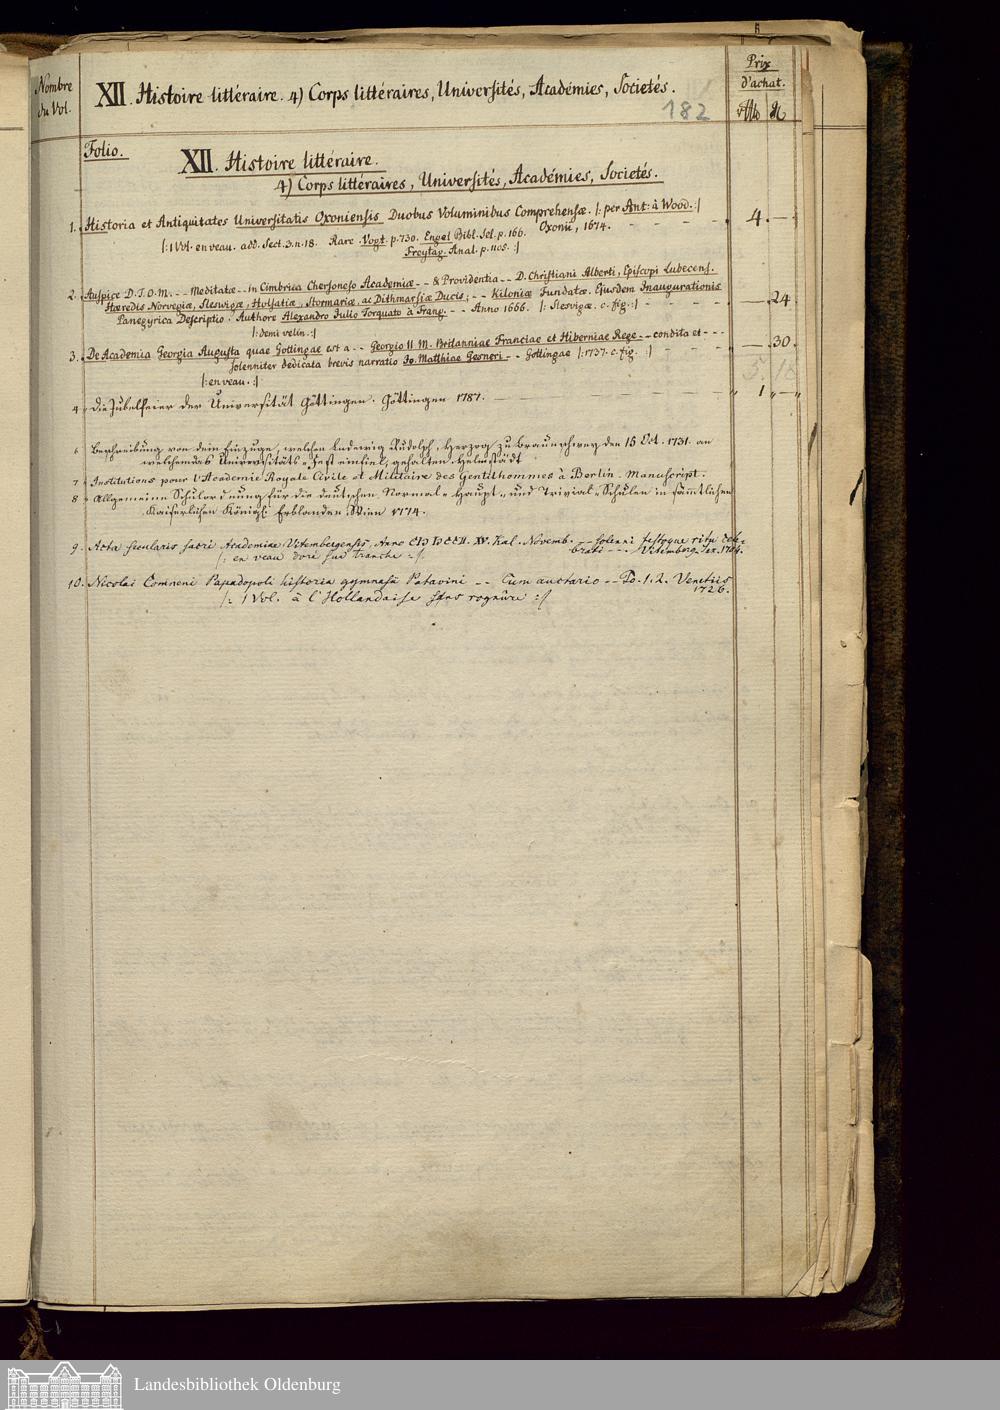 Nombre
du Vol.
XII. Histoire littéraire. 4) Corps littéraires, Universités, Académies, Societés.
182
Prix
d'achat.
Folio.
XII. Histoire littéraire.
4) Corps littéraires, Universités, Académies, Societés.
1. Historia et Antiquitates Universitatis Oxoniensis Duobus Voluminibus Comprehensæ. |: per Ant: à Wood. :| 4. —
|: 1 Vol. en veau. add. Sect. 3. n. 18. Rare. Vogt. p. 730. Engel Bibl. Sel. p. 166. Oxonii, 1674.
Freytag. Anal. p. 1105. :|
2. Auspice D.T.O.M. -- Meditatæ -- in Cimbrica Chersoneso Academiæ -- & Providentia -- D. Christiani Alberti, Episcopi Lubecens.
Hæredis Norvegiæ, Slesvigæ, Holsatiæ, Stormariæ ac Dithmarsiæ Ducis, -- Kiloniæ Fundatæ. Ejusdem Inaugurationis — 24.
Panegyrica Descriptio. Authore Alexandro Julio Torquato à Frang. -- Anno 1666. |: Slesvigæ. c. fig. :|
|: demi velin. :|
3. De Academia Georgia Augusta quae Gottingae est a -- Georgio II M. Britanniae Franciae et Hiberniae Rege -- condita et --- — 30.
solenniter dedicata brevis narratio Jo. Matthiae Gesneri -- Gottingae |: 1737. c. fig. :|
|: en veau. :|
5. 18
4 " Die Jubelfeier der Universität Göttingen. Göttingen 1787. " 1 " — "
6 Beschreibung von dem Einzuge, welchen Ludewig Rudolph, Herzog zu Braunschweig den 15 Oct. 1731. an
welchem das Universitäts-Fest einfiel, gehalten. Helmstädt
7 " Institutions pour l'Academie Royale Civile et Militaire des Gentilhommes à Berlin. Manuscript.
8 " Allgemeine Schulordnung für die deutschen Normal- Haupt- und Trivial-Schulen in sämmtlichen
Kaiserlichen Königl. Erblanden. Wien 1774.
9. Acta secularis sacri Academiae Vitembergensis, Anno CIƆ IƆCCII. XV. Kal. Novemb. -- solenni festoque ritu cele-
brati --. Vitemberg. 1704.
|: en veau doré sur tranche :|
10. Nicolai Comneni Papadopoli historia gymnasii Patavini -- Cum auctario -- To. 1. 2. Venetiis
1726.
|: 1 Vol. à l'Hollandaise sans rognûre :|
Landesbibliothek Oldenburg